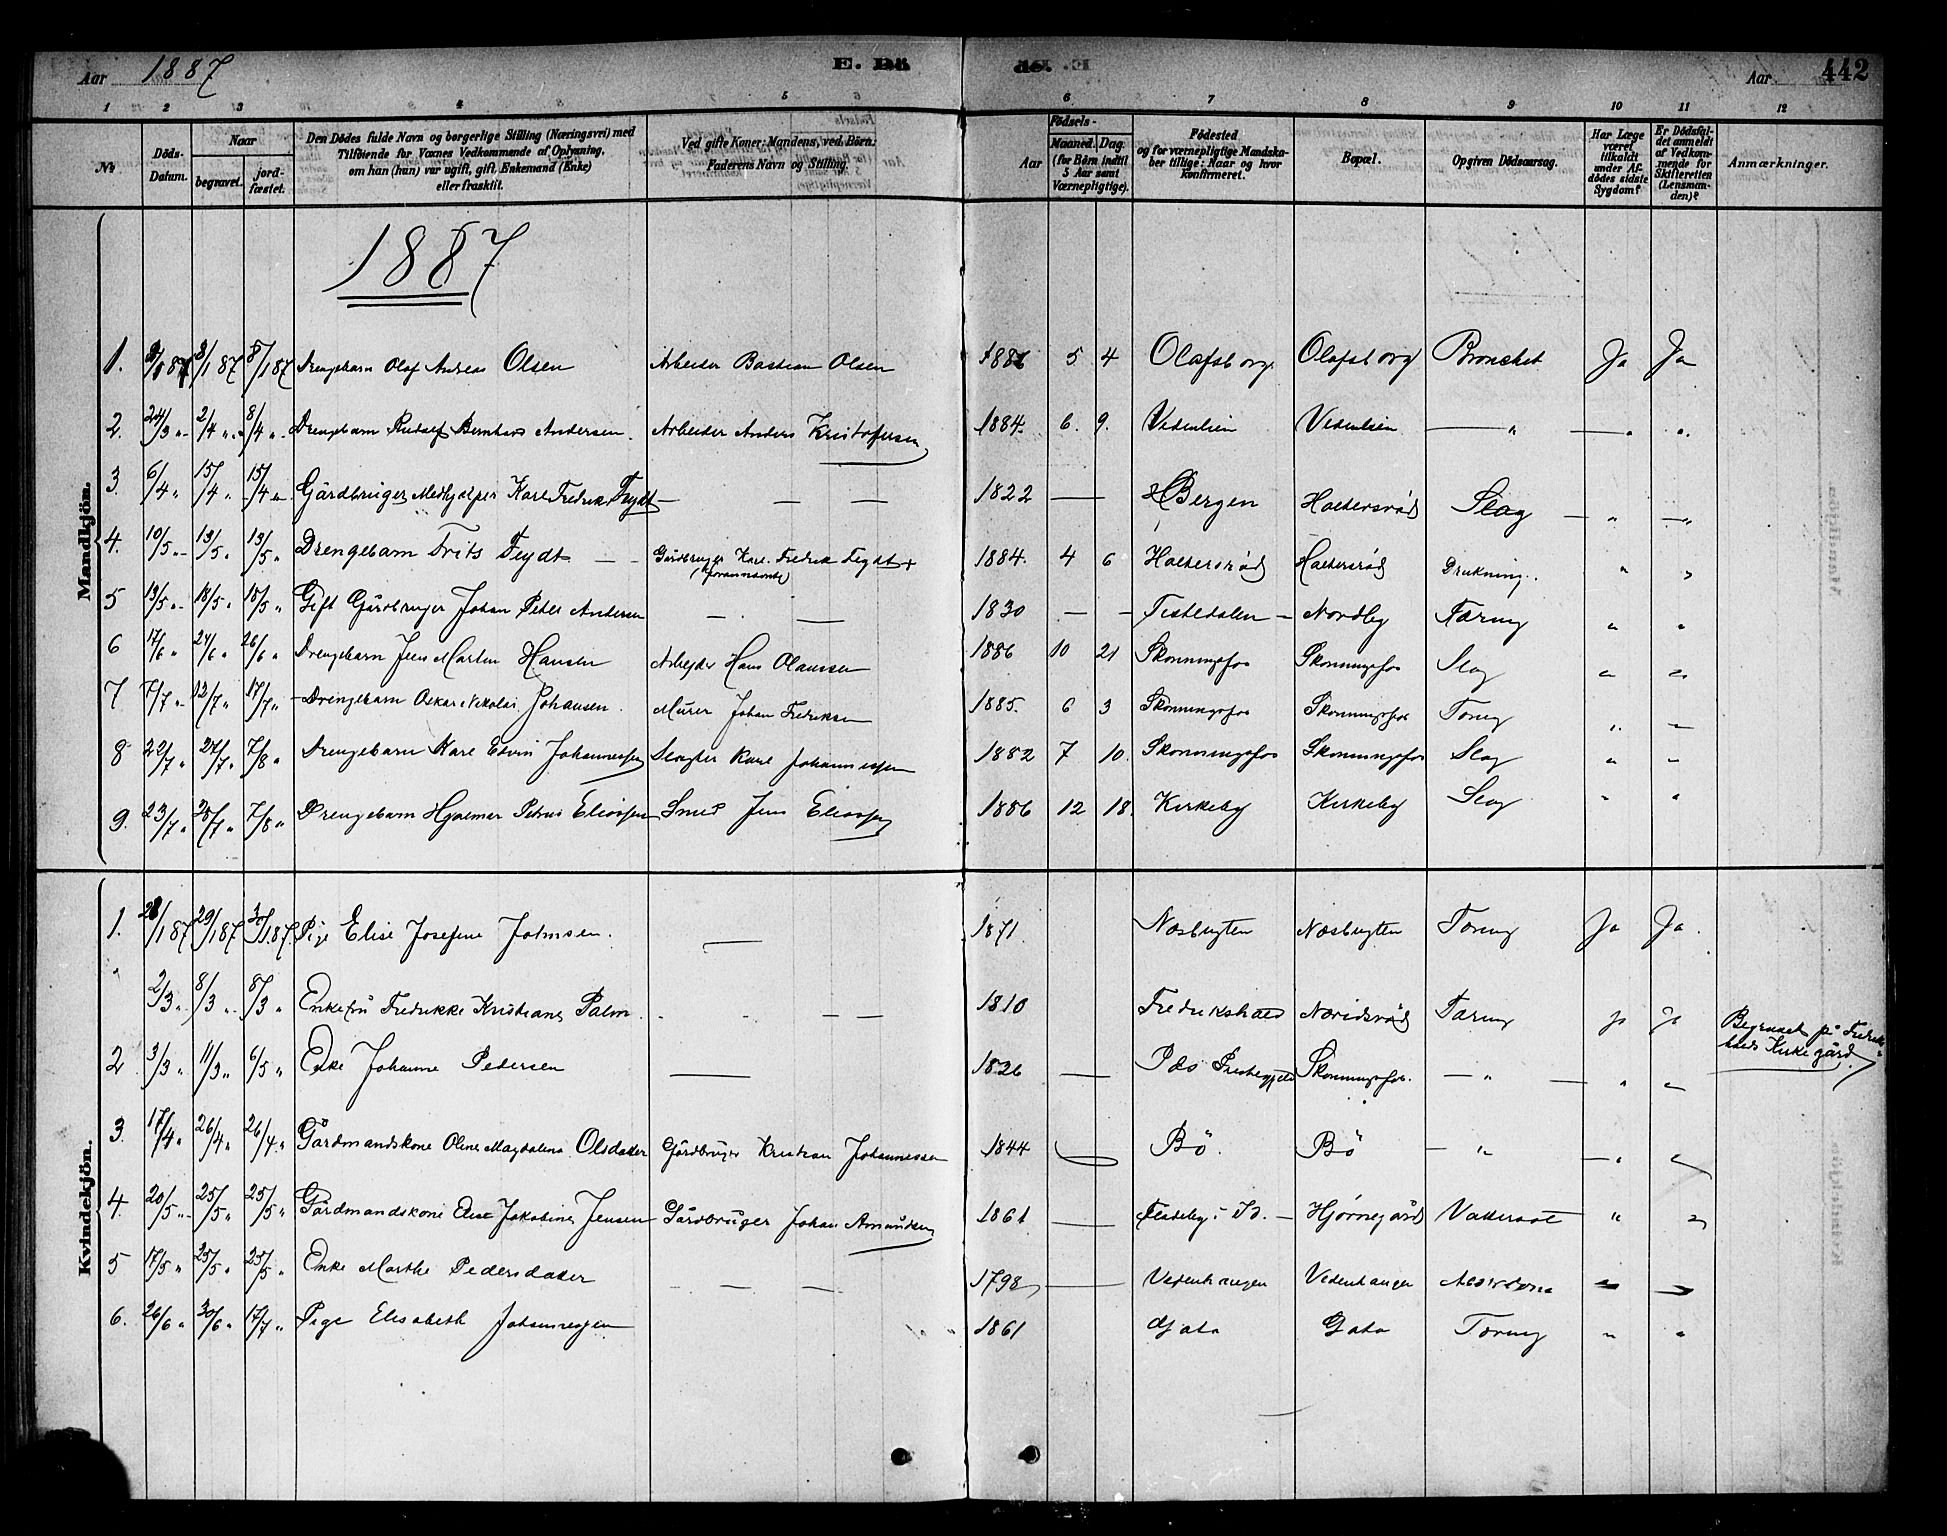 Aar 1887 E. Dö de. Aar 442
1 2 3 4 5 6 7 8 9 10 11 12
№ Döds-Datum. Naar begravet. jordfæstet. Den Dödes fulde Navn og borgerlige Stilling (Næringsvei) med Tilföiende for Voxnes Vedkommende af Oplysning, om han (hun) var ugift, gift, Enkemand (Enke) eller fraskilt. Ved gifte Koner: Mandens, ved Börn: Faderens Navn og Stilling. Aar Födsels- Maaned. Dag. (for Börn indtil 5 Aar samt Værnepligtige). Födested og for værnepligtige Mandskaber tillige: Naar og hvor konfirmeret. Bopæl. Opgiven Dödsaarsag. Har Læge været tilkaldt under Afdödes sidste Sygdom? Er Dödsfaldet anmeldt af Vedkommende for Skifteretten (Lensmanden)? Anmærkninger.
1887
Mandkjön.
1. 3/1 87 8/1 87 8/1 87 Drengebarn Olaf Andreas Olsen Arbeider Bastian Olsen 1886 5 4 Olafsborg Olafsborg Bronchet Ja Ja
2. 24/3 " 2/4 " 8/4 " Drengebarn Rudolf Bernhard Andersen. Arbeider Anders Kristofersen 1884. 6. 9. Vedenlien Vedenlien — " — " "
3. 6/4 " 15/4 " 15/4 " Gårdbruger Medhjælper Karl Fredrik Feydt — — — 1822 — Bergen Holtersrød Slag — " — "
4. 10/5 " 13/5 " 13/5 " Drengebarn Frits Feydt — — Gårdbruger Karl Fredrik Feydt + 1884. 4 6 Holtersrød Holtersrød Drukning. " "
5 13/5 " 18/5 " 18/5 " Gift Gårdbruger Johan Peter Andersen — — 1830 — — Tistedalen — Nordby Tæring " "
6 17/6 " 24/6 " 26/6 " Drengebarn Jens Martin Hansen Arbejder Hans Olaussen 1886 10 21 Skonningsfos Skonningsfos Slag " "
7 7/7 " 12/7 " 17/7 " Drengebarn Oskar Nikolai Johansen. Murer Johan Fredriksen 1885. 6 3 Skonningsfos Skonningsfos Tæring " "
8 22/7 " 27/7 " 7/8 " Drengebarn Karl Edvin Johannessen Slagter Karl Johannessen 1882 7 10. Skonningsfos Skonningsfos Slag " "
9. 23/7 " 28/7 " 7/8 " Drengebarn Hjalmar Petrus Eliassen Smed Jens Eliassen 1886 12 18. Kirkeby Kirkeby Slag " "
Kvindekjön.
1. 28/1 87 29/1 87 30/1 87 Pige Elise Josefine Johnsen. — 1871. Næsbugten Næsbugten Tæring Ja Ja.
" 2/3 " 8/3 " 8/3 " Enkefru Fredrikke Kristiane Palm. — 1810 Fredrikshald Næridsrød Tæring ja ja Begravet på Fredrikshalds Kirkegård.
2 3/3 " 11/3 " 6/5 " Enke Johanne Pedersen — 1826 — Præstegjeld Skonningsfos. — " — " "
3. 17/4 " 26/4 " 26/4 " Gårdmandskone Oline Magdalena Olsdatter Gårdbruger Kristian Johannessen 1844 — Bö. Bö — " — " "
4. 20/5 " 25/5 " 25/5 " Gårdmandskone Else Jakobine Jensen Gårdbruger Johan Amundsen 1861 — Fladeby i Id. — Hjørnegård Vattersot " "
5 17/5 " 25/5 " 25/5 " Enke Marthe Pedersdatter — — — 1798 — Vedenhaugen Vedenhaugen " "
6. 26/6 " 30/6 " 17/7 " Pige Elisabeth Johannessen 1861 Gata Gata Tæring " "